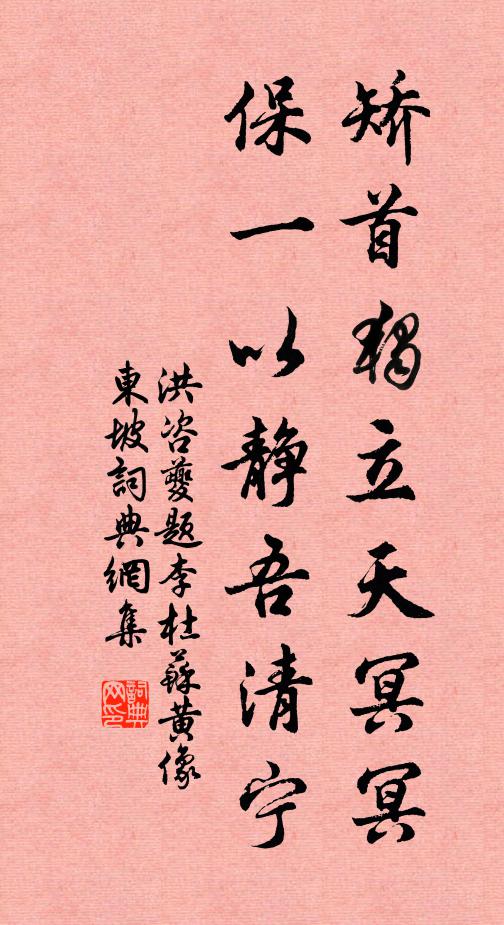 矫首独立天冥冥
保一以静吾清宁
洪咨夔题李杜苏黄像
東坡詞典網集
詞典
网印